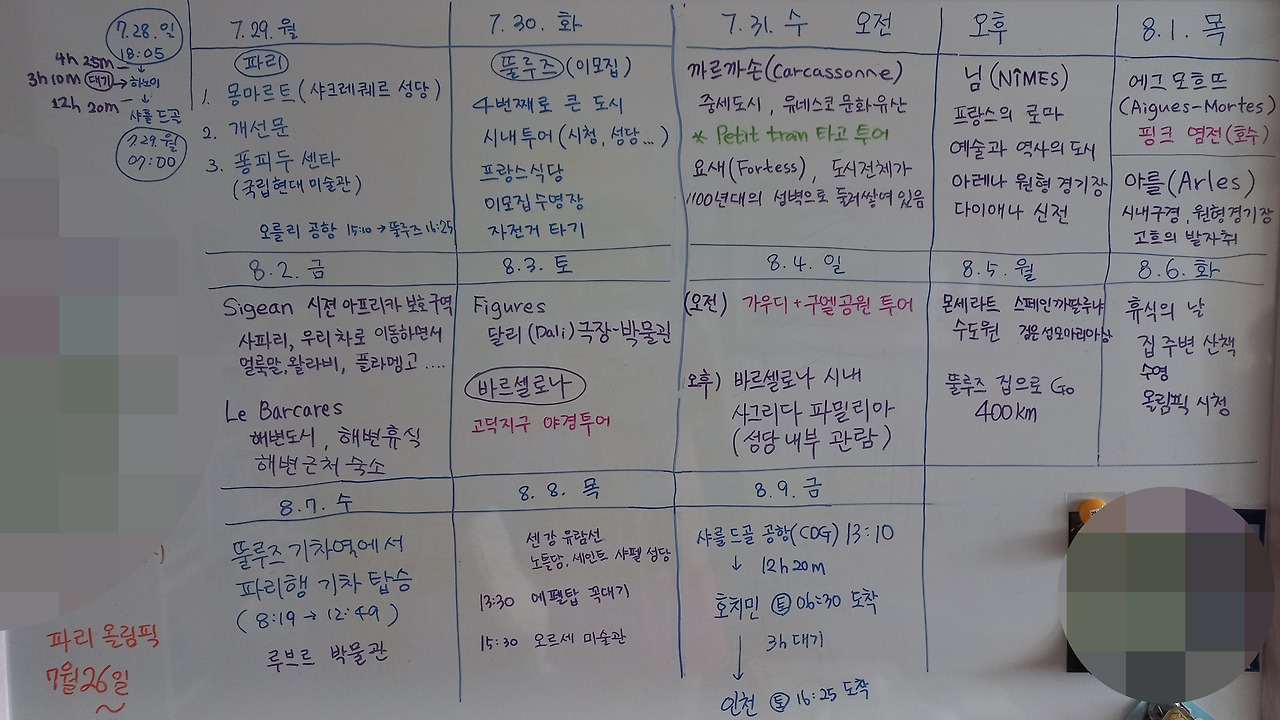 7.28.일
18:05
4h 25m
3h 10m 대기 → 하노이
12h 20m
샤를드골
7.29.월
07:00
7.29.월
파리
1. 몽마르트(샤크레퀘르 성당)
2. 개선문
3. 퐁피두 센타
(국립현대 미술관)
오를리 공항 15:10 → 뚤루즈 16:25
7.30.화
뚤루즈 (이모집)
4번째로 큰 도시
시내투어 (시청, 성당...)
프랑스식당
이모집수영장
자전거 타기
7.31. 수 오전
까르까손(Carcassonne)
중세도시, 유네스코 문화유산
* Petit train 타고 투어
요새(Fortess), 도시전체가
1100년대의 성벽으로 둘러쌓여 있음
오후
님 (NîMES)
프랑스의 로마
예술과 역사의 도시
아레나 원형 경기장
다이애나 신전
8.1. 목
에그 모흐뜨
(Aigues-Mortes)
핑크 염전(호수)
아를(Arles)
시내구경, 원형경기장
고흐의 발자취
8.2. 금
Sigean 시젼 아프리카 보호구역
사파리, 우리차로 이동하면서
얼룩말, 왈라비, 플라멩고 ....
Le Barcares
해변도시, 해변휴식
해변근처 숙소
8.3. 토
Figures
달리(Dali)극장-박물관
바르셀로나
고딕지구 야경투어
8.4. 일
(오전) 가우디+구엘공원 투어
오후) 바르셀로나 시내
사그리다 파밀리아
(성당 내부 관람)
8.5. 월
몬세라트 스페인까딸루냐
수도원 검은성모마리아상
뚤루즈 집으로 Go
400km
8.6. 화
휴식의 날
집 주변 산책
수영
올림픽 시청
8.7. 수
뚤루즈 기차역에서
파리행 기차 탑승
(8:19 → 12:49)
루브르 박물관
8.8. 목
센강 유람선
노틀담, 세인트 샤펠 성당
13:30 에펠탑 꼭대기
15:30 오르세 미술관
8.9. 금
샤를드골 공항(CDG) 13:10
↓ 12h 20m
호치민 토 06:30 도착
3h 대기
인천 토 16:25 도착
파리 올림픽
7월 26일
~